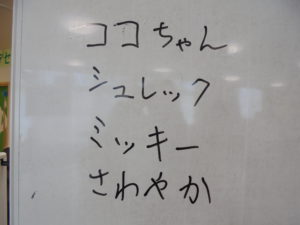 ココちゃん
シュレック
ミッキー
さわやか